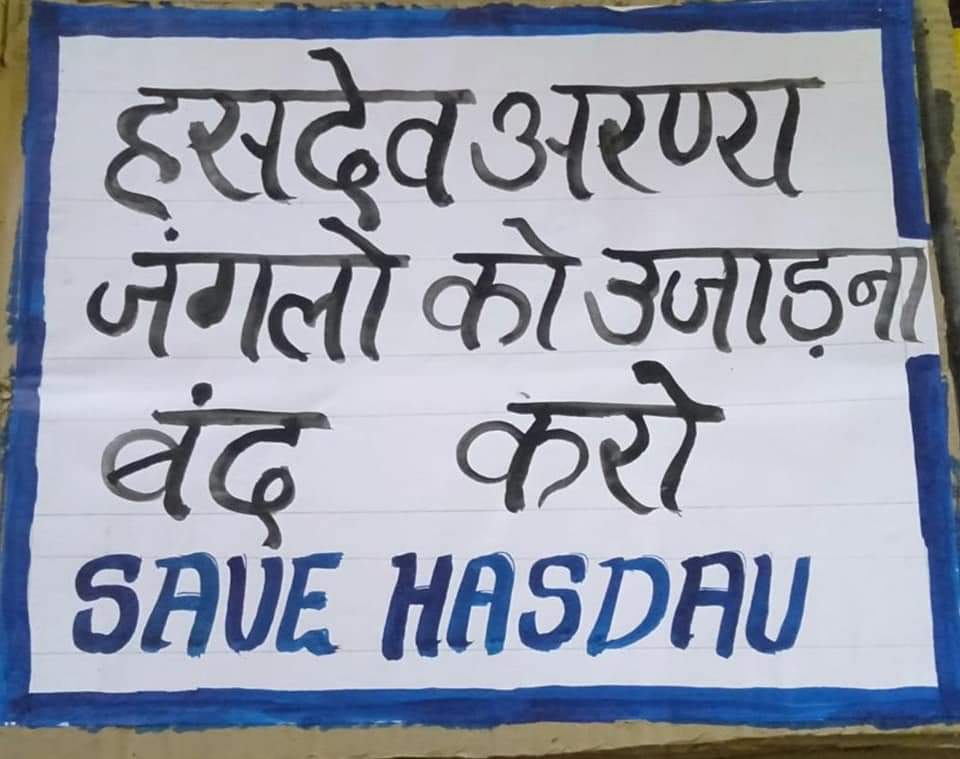 हसदेव अरण्य
जंगलो को उजाड़ना
बंद करो
SAVE HASDAV